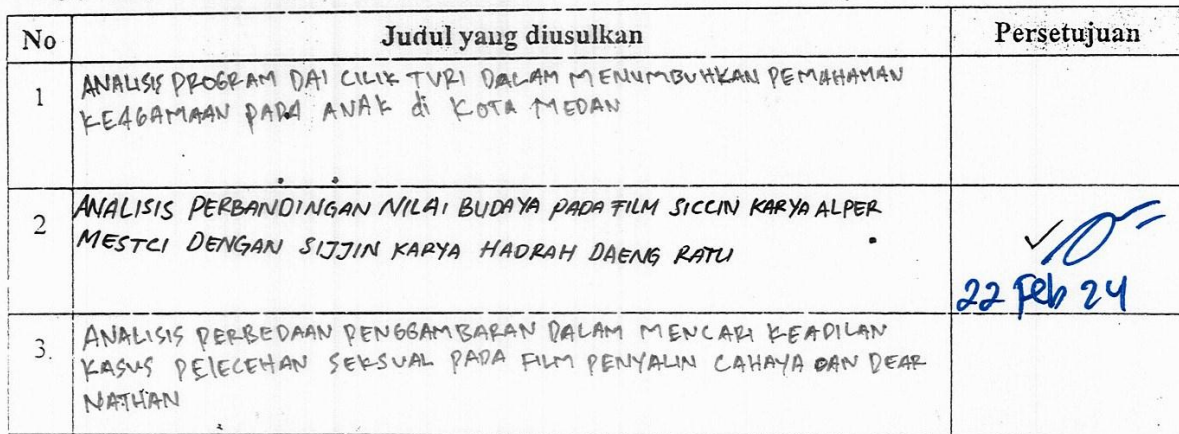 No Judul yang diusulkan Persetujuan
1 ANALISIS PROGRAM DAI CILIK TVRI DALAM MENUMBUHKAN PEMAHAMAN
KEAGAMAAN PADA ANAK di KOTA MEDAN
2 ANALISIS PERBANDINGAN NILAI BUDAYA PADA FILM SICCIN KARYA ALPER
MESTCI DENGAN SIJJIN KARYA HADRAH DAENG RATU
22 Feb 24
3. ANALISIS PERBEDAAN PENGGAMBARAN DALAM MENCARI KEADILAN
KASUS PELECEHAN SEKSUAL PADA FILM PENYALIN CAHAYA DAN DEAR
NATHAN